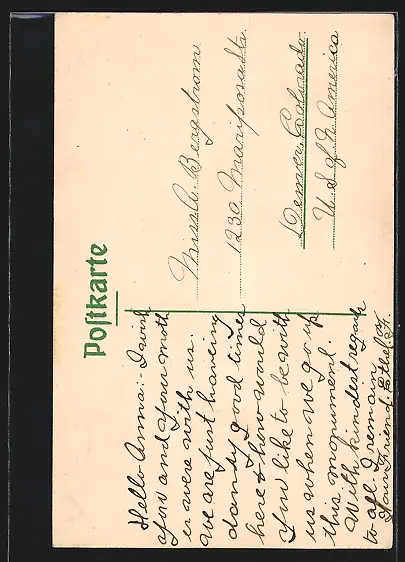 Postkarte
Hello Anna:- I wish
you and your moth
er were with us.
We are just having
dandy good times
here & how would
you like to be with
us when we go up
this monument.
With kindest regards
to all. I remain
Your Friend Ethel
Miss A. Bergstrom
1230 Mariposa Str.
Denver, Colorado
U S of N America